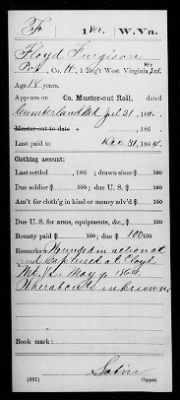 F 1 W.Va.
Floyd Furgison
Pvt., Co. H, 1 Reg't West Virginia Inf.
Age 18 years.
Appears on Co. Muster-out Roll, dated
Cumberland Md July 21, 186
Muster-out to date , 186
Last paid to Dec 31, 1864.
Clothing account:
Last settled , 186 ; drawn since $ 100
Due soldier $ 100; due U. S. $ 100
Am't for cloth'g in kind or money adv'd $ 100
Due U. S. for arms, equipments, &c., $ 100
Bounty paid $ 100; due $ 100 100
Remarks: Wounded in action
and captured at Cloyd
Mt. Va. May 9, 1864
Whereabouts unknown
Book mark:
Copyist.